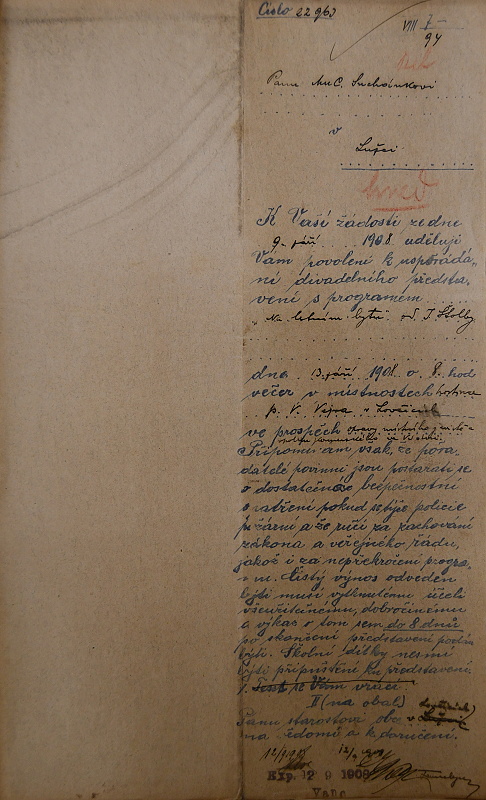 Číslo 22963
VIII 7-
94
Panu MUC. Suchánkovi
v
Lužci
hned
K Vaší žádosti ze dne
9. září 1908 uděluji
Vám povolení k uspořádá-
ní divadelního předsta-
vení s programem
"Na letním bytu" od J. Štolby
dne 13. září 1908 o 8. hod
večer v místnostech hostince
p. V. Vejra v
ve prospěch
Připomínám však, že pořa-
datelé povinni jsou postarati se
o dostatečné bezpečnostní
opatření pokud se týče policie
požární a že ručí za zachování
zákona a veřejného řádu,
jakož i za nepřekročení progra-
mu. Čistý výnos odveden
býti musí vytknutému účeli
všeužitečnému, dobročinnému
a výkaz o tom sem do 8 dnů
po skončení představení podán
býti. Školní dítky nesmí
býti připuštěni ku představení.
se Vám vrací
II (na obal)
Panu starostovi obce v
na vědomí a k doručení.
12/9 1908
Exp. 12 9 1908